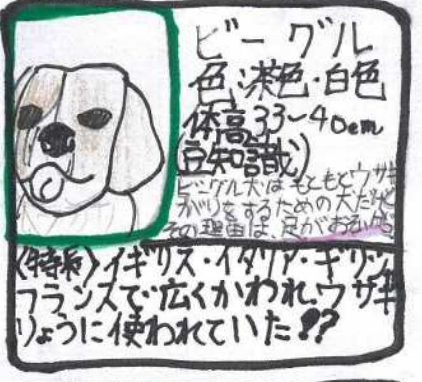 ビーグル
色:茶色・白色
体高33〜40cm
(豆知識)
ビーグル犬はもともとウサギ
がりをするための犬だ
その理由は、足がおそい
(特ちょう)イギリス・イタリア・ギリシャ
フランスで広くかわれ、ウサギ
りょうに使われていた!?